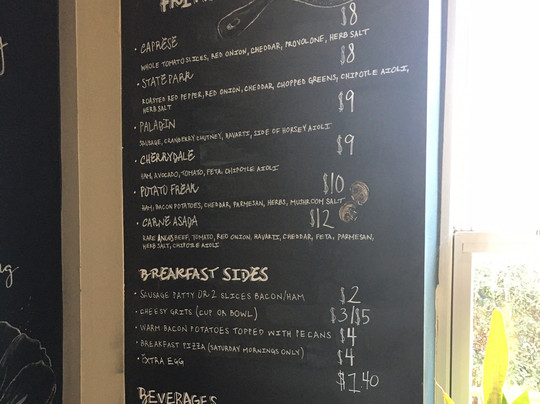 $8
· CAPRESE
WHOLE TOMATO SLICES, RED ONION, CHEDDAR, PROVOLONE, HERB SALT
$8
· STATE PARK
ROASTED RED PEPPER, RED ONION, CHEDDAR, CHOPPED GREENS, CHIPOTLE AIOLI,
HERB SALT
$9
· PALADIN
SAUSAGE, CRANBERRY CHUTNEY, HAVARTI, SIDE OF HORSEY AIOLI
$9
· CHERRYDALE
HAM, AVOCADO, TOMATO, FETA, CHIPOTLE AIOLI
· POTATO FREAK $10
HAM, BACON POTATOES, CHEDDAR, PARMESAN, HERBS, MUSHROOM SALT
· CARNE ASADA $12
RARE ANGUS BEEF, TOMATO, RED ONION, HAVARTI, CHEDDAR, FETA, PARMESAN,
HERB SALT, CHIPOTLE AIOLI
BREAKFAST SIDES
· SAUSAGE PATTY OR 2 SLICES BACON/HAM $2
· CHEESY GRITS (CUP OR BOWL) $3/$5
· WARM BACON POTATOES TOPPED WITH PECANS $4
· BREAKFAST PIZZA (SATURDAY MORNINGS ONLY) $4
· EXTRA EGG $1.40
BEVERAGES